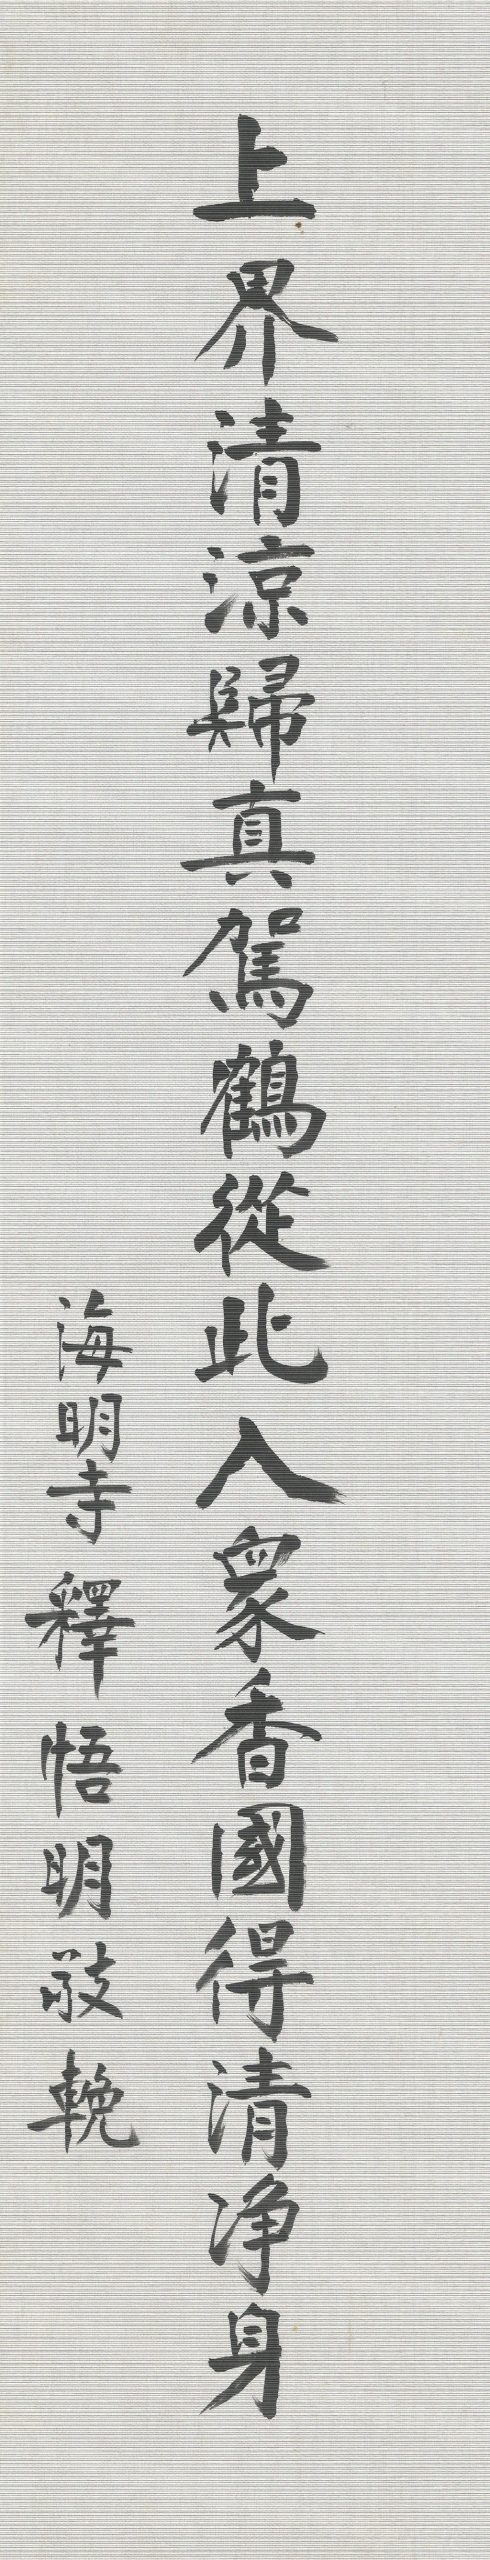 上界清涼歸真駕鶴從此入眾香國得清淨身
海明寺釋悟明敬輓